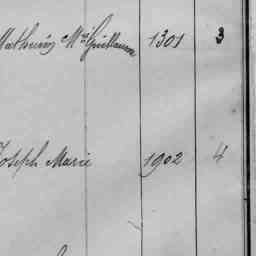 Mathurin Mie Guillaume 1301 3
Joseph Marie 1902 4